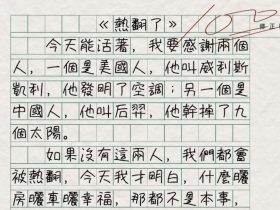 《熱翻了》
100
今天能活著，我要感謝兩個
人，一個是美國人，他叫威利斯
凱利，他發明了空調；另一個是
中國人，他叫后羿，他幹掉了九
個太陽。
如果沒有這兩人，我們都會
被熱翻，今天我才明白，什麼曬
房曬車曬幸福，那都不是本事，